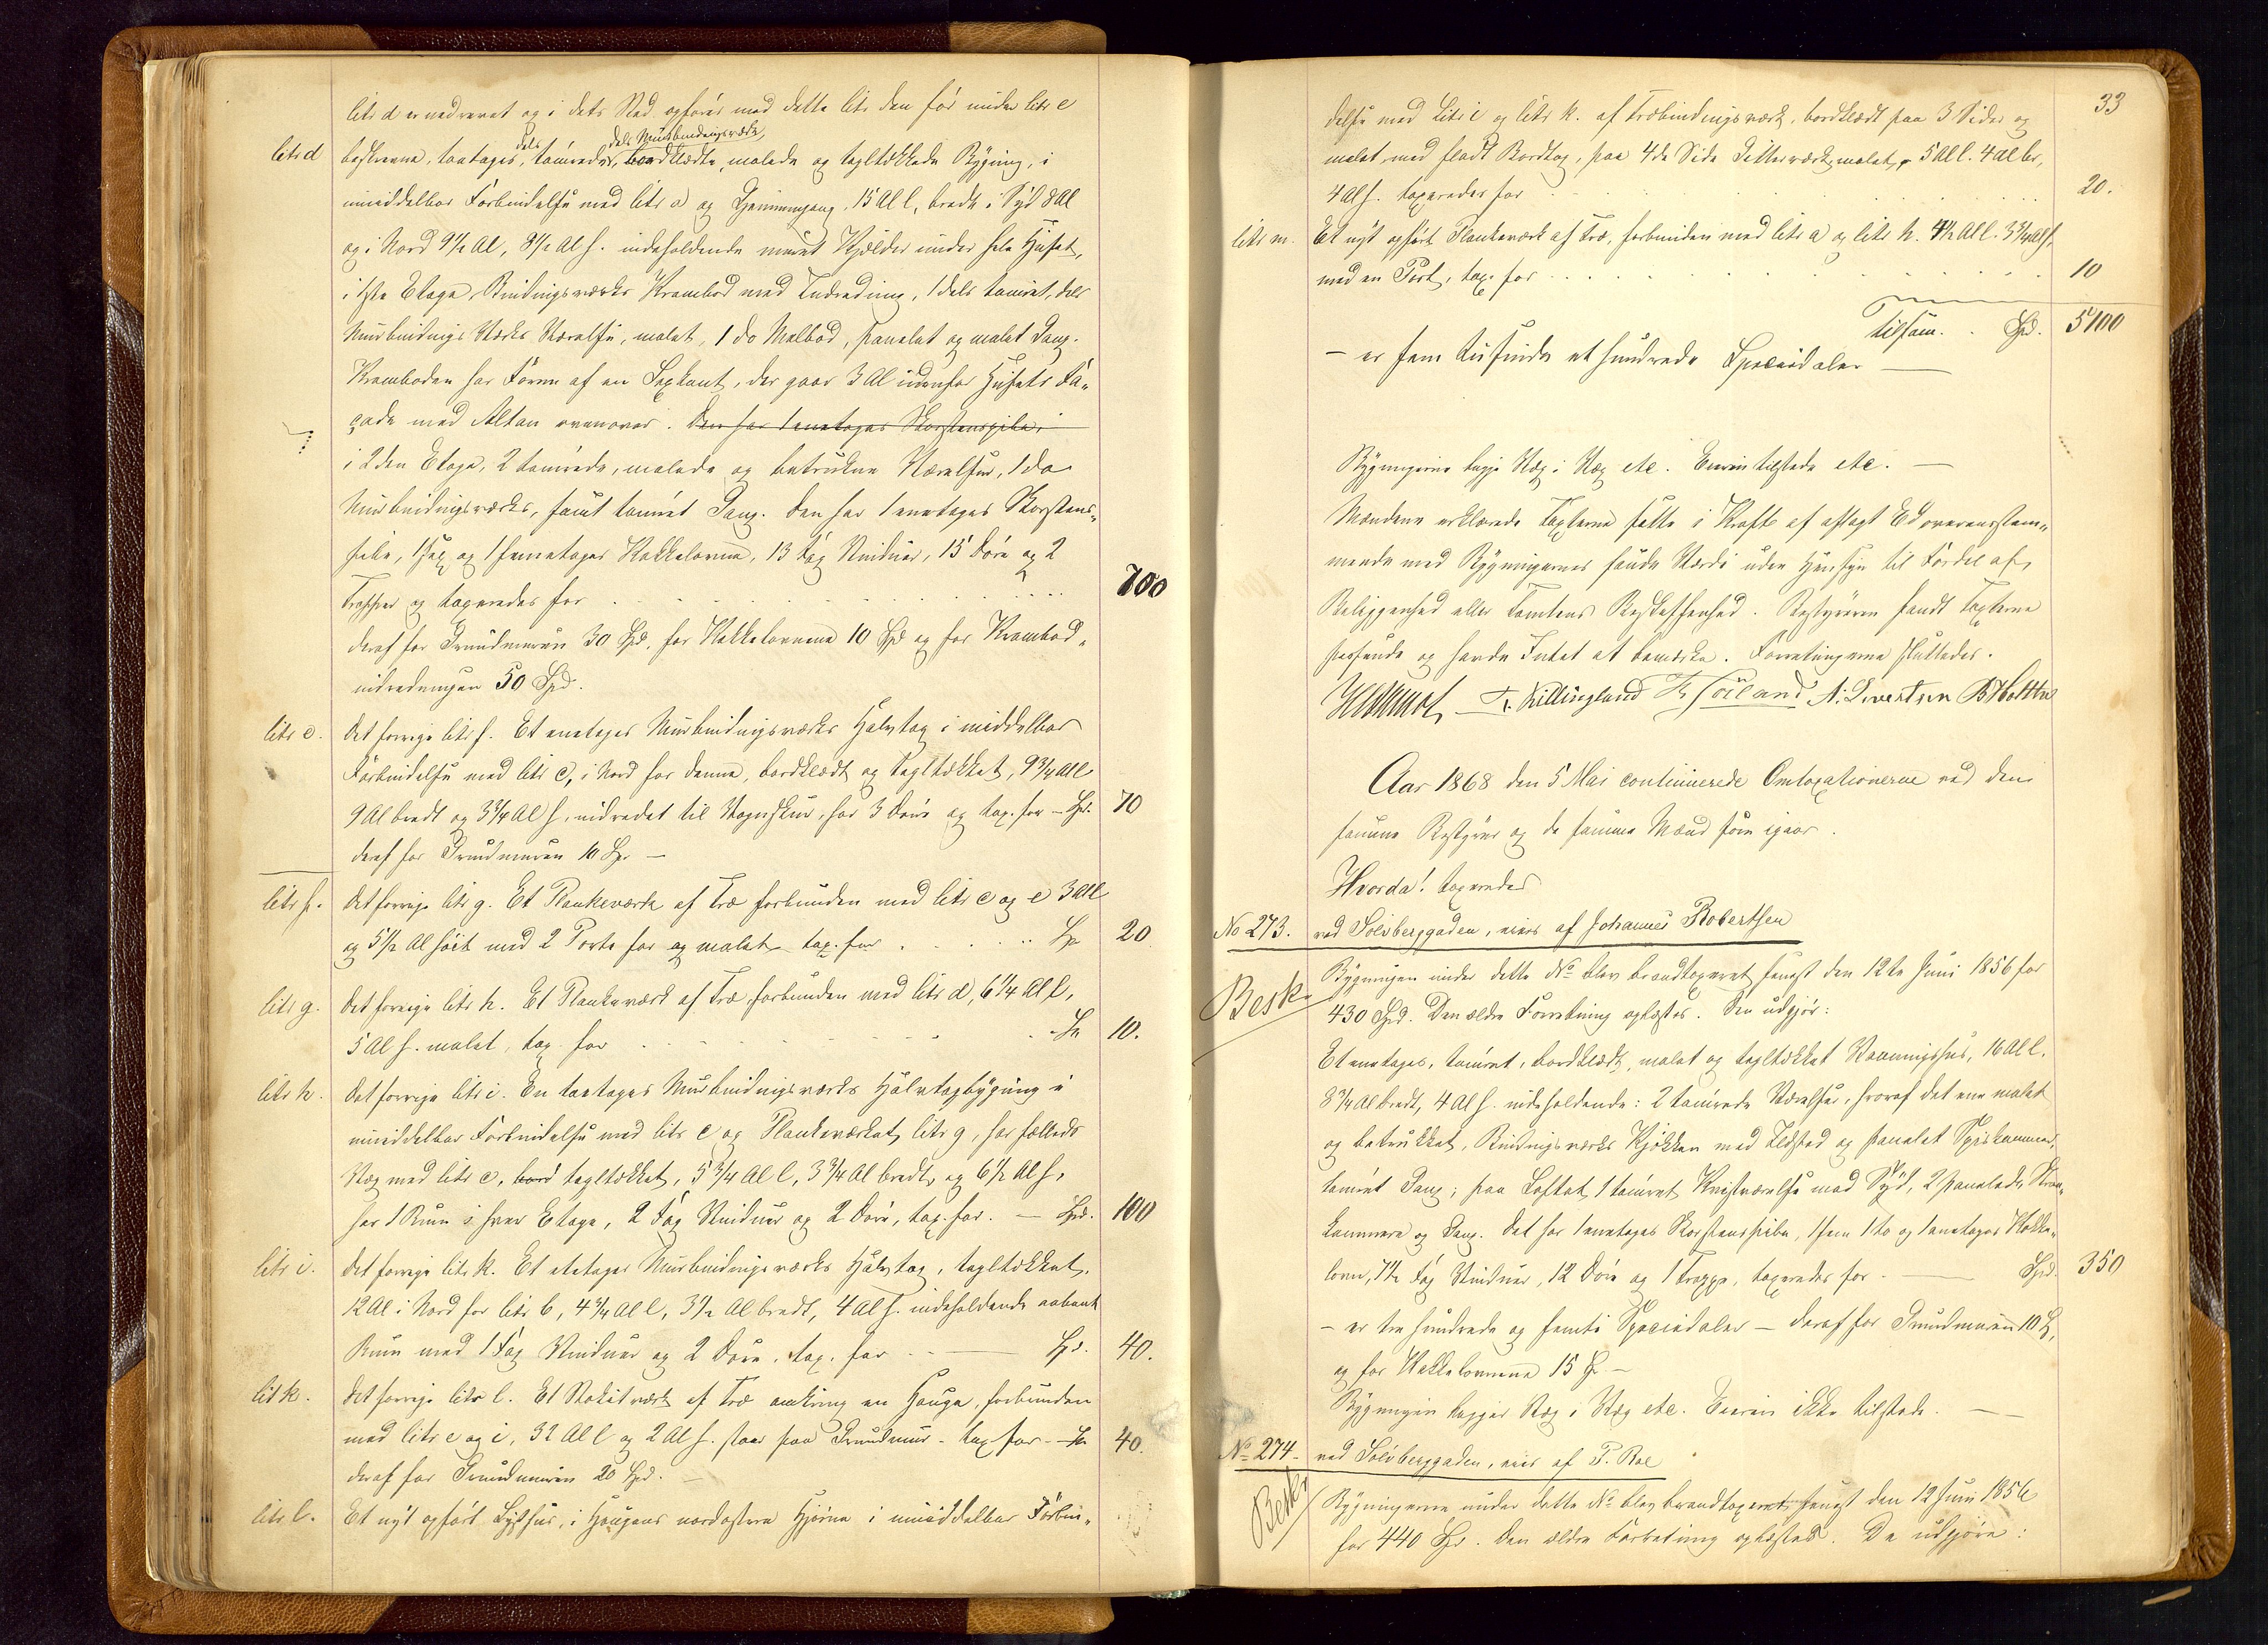 litr d er nedrevet og i dets Sted opføres med dette litr den før under litr e
dels dels Murbindingsværks
litr d beskrevne, toetages, tømrede, bordklædte, malede og tegltækkede Bygning, i
umiddelbar Forbindelse med litr a og Gjennemgang, 15 Al l, bredt i Syd 8 Al
og i Nord 9 1/2 Al, 8 1/2 Al h. indeholdende muret Kjelder under hele Huset,
i 1ste Etage, Bindingsværks Krambod med Indredning, 1 dels tømret, dels
Murbindings Værks Værelse, malet, 1 do Melbod, panelet og malet Gang.
Kramboden har Form af en Sexkant, der gaar 3 Al udenfor Husets Fa-
çade med Altan ovenover. Den har 1 enetages Skorstenspibe,
i 2den Etage, 2 tømrede, malede og betrukne Værelser, 1 do
Murbindingsværks, samt tømret Gang. Den har 1 enetages Skorstens-
pibe, 1 sex og 1 femetages Kakkelovne, 13 Fag Vinduer, 15 Døre og 2
Trapper og taxeredes for 700
deraf for Grundmuren 30 Spd, for Kakkelovnene 10 Spd og for Krambod-
indredningen 50 Spd.
litr e. Det forrige litr f. Et enetages Murbindingsværks Halvtag i middelbar
Forbindelse med litr c, i Nord for denne, bordklædt og tegltækket, 9 3/4 Al l
9 Al bredt og 3 3/4 Al h, indredet til Vognskur, har 3 Døre og tax. for - Spd. 70
deraf for Grundmuren 10 Sp. -
litr f. Det forrige litr g. Et Plankeværk af Træ forbunden med litr c og e 3 Al l
og 5 1/2 Al høit med 2 Porte for og malet tax. for Sp 20
litr g. Det forrige litr h. Et Plankeværk af Træ forbunden med litr d, 6 1/4 Al l,
5 Al h. malet, tax. for Sp 10.
litr h. Det forrige litr i. En toetages Murbindingsværks Halvtagbygning i
umiddelbar Forbindelse med litr c og Plankeværket litr g, har fælleds
Væg med litr c, bord tegltækket, 5 3/4 Al l, 3 3/4 Al bredt og 6 1/2 Al h,
har 1 Rum i hver Etage, 2 Fag Vinduer og 2 Døre, tax. for. - Spd. 100
litr i. Det forrige litr k. Et etetages Murbindingsværks Halvtag, tegltækket,
12 Al i Nord for litr b, 4 3/4 Al l, 3 1/2 Al bredt, 4 Al h. indeholdende aabent
Rum med 1 Fag Vinduer og 2 Døre, tax. for Sp. 40.
lit k. Det forrige litr l. Et Stakitværk af Træ omkring en Hauge, forbunden
med litr e og i, 32 Al l og 2 Al h. staar paa Grundmur - tax for - Sp 40.
deraf for Grundmuren 20 Spd. -
litr l. Et nyt opført Lysthus, i Haugens nordøstre Hjørne i umiddelbar Forbin-
33
delse med Litr i og litr k. af Træbindingsværk, bordklædt paa 3 Sider og
malet, med fladt Bordtag, paa 4de Side Gitterværk, malet, 5 Al l. 4 Al br,
4 Al h. taxeredes for 20.
litr m. Et nyt opført Plankeværk af Træ, forbunden med litr a og litr h. 4 1/2 Al l. 3 3/4 Al h.
med en Port, tax. for 10
Tilsam. Spd. 5100
- er fem tusinde et hundrede Speciedaler -
Bygningerne ligge Væg i Væg etc. Eieren tilstede etc. -
Mændene erklærede Taxterne satte i Kraft af aflagt Ed overensstem-
mende med Bygningernes sande Værdi uden Hensyn til Fordel af
Beliggenhed eller Tomtens Beskaffenhed. Bestyreren fandt Taxterne
passende og havde Intet at bemærke. Forretningerne sluttedes.
T. Killingland A. Sivertsen
Aar 1868 den 5 Mai continuerede Omtaxationerne ved den
samme Bestyrer og de samme Mænd som igaar.
Hvorda! taxeredes
No 273. ved Sølvberggaden, eies af Johannes Robertsen
Besk. Bygningen under dette No blev brandtaxeret senest den 12te Juni 1856 for
430 Spd. Den ældre Forretning oplæstes. Den udgjør:
Et enetages, tømret, bordklædt, malet og tegltækket Vaaningshus, 16 Al l.
8 3/4 Al bredt, 4 Al h. indeholdende: 2 tømrede Værelser, hvoraf det ene malet
og betrukket, Bindingsværks Kjøkken med Ildsted og panelet Spiskammer,
tømret Gang; paa Loftet 1 tømret Kvistværelse mod Syd, 2 panelede
kammere og Gang. Det har 1 enetages Skorstenspibe, 1 fem 1 to og 1 enetages Kakke-
lovn, 7 1/2 Fag Vinduer, 12 Døre og 1 Trappe, taxeredes for - Spd. 350
- er tre hundrede og femti Speciedaler - deraf for Grundmuren 10 Sp,
og for Kakkelovnene 15 Sp -
Bygningen ligger Væg i Væg etc. Eieren ikke tilstede. -
No 274. ved Sølvberggaden, eies af P. Roe
Beskr. Bygningerne under dette No blev brandtaxeret, senest den 12 Juni 1856
for 440 Sp. Den ældre Forretning oplæstes. De udgjøre: